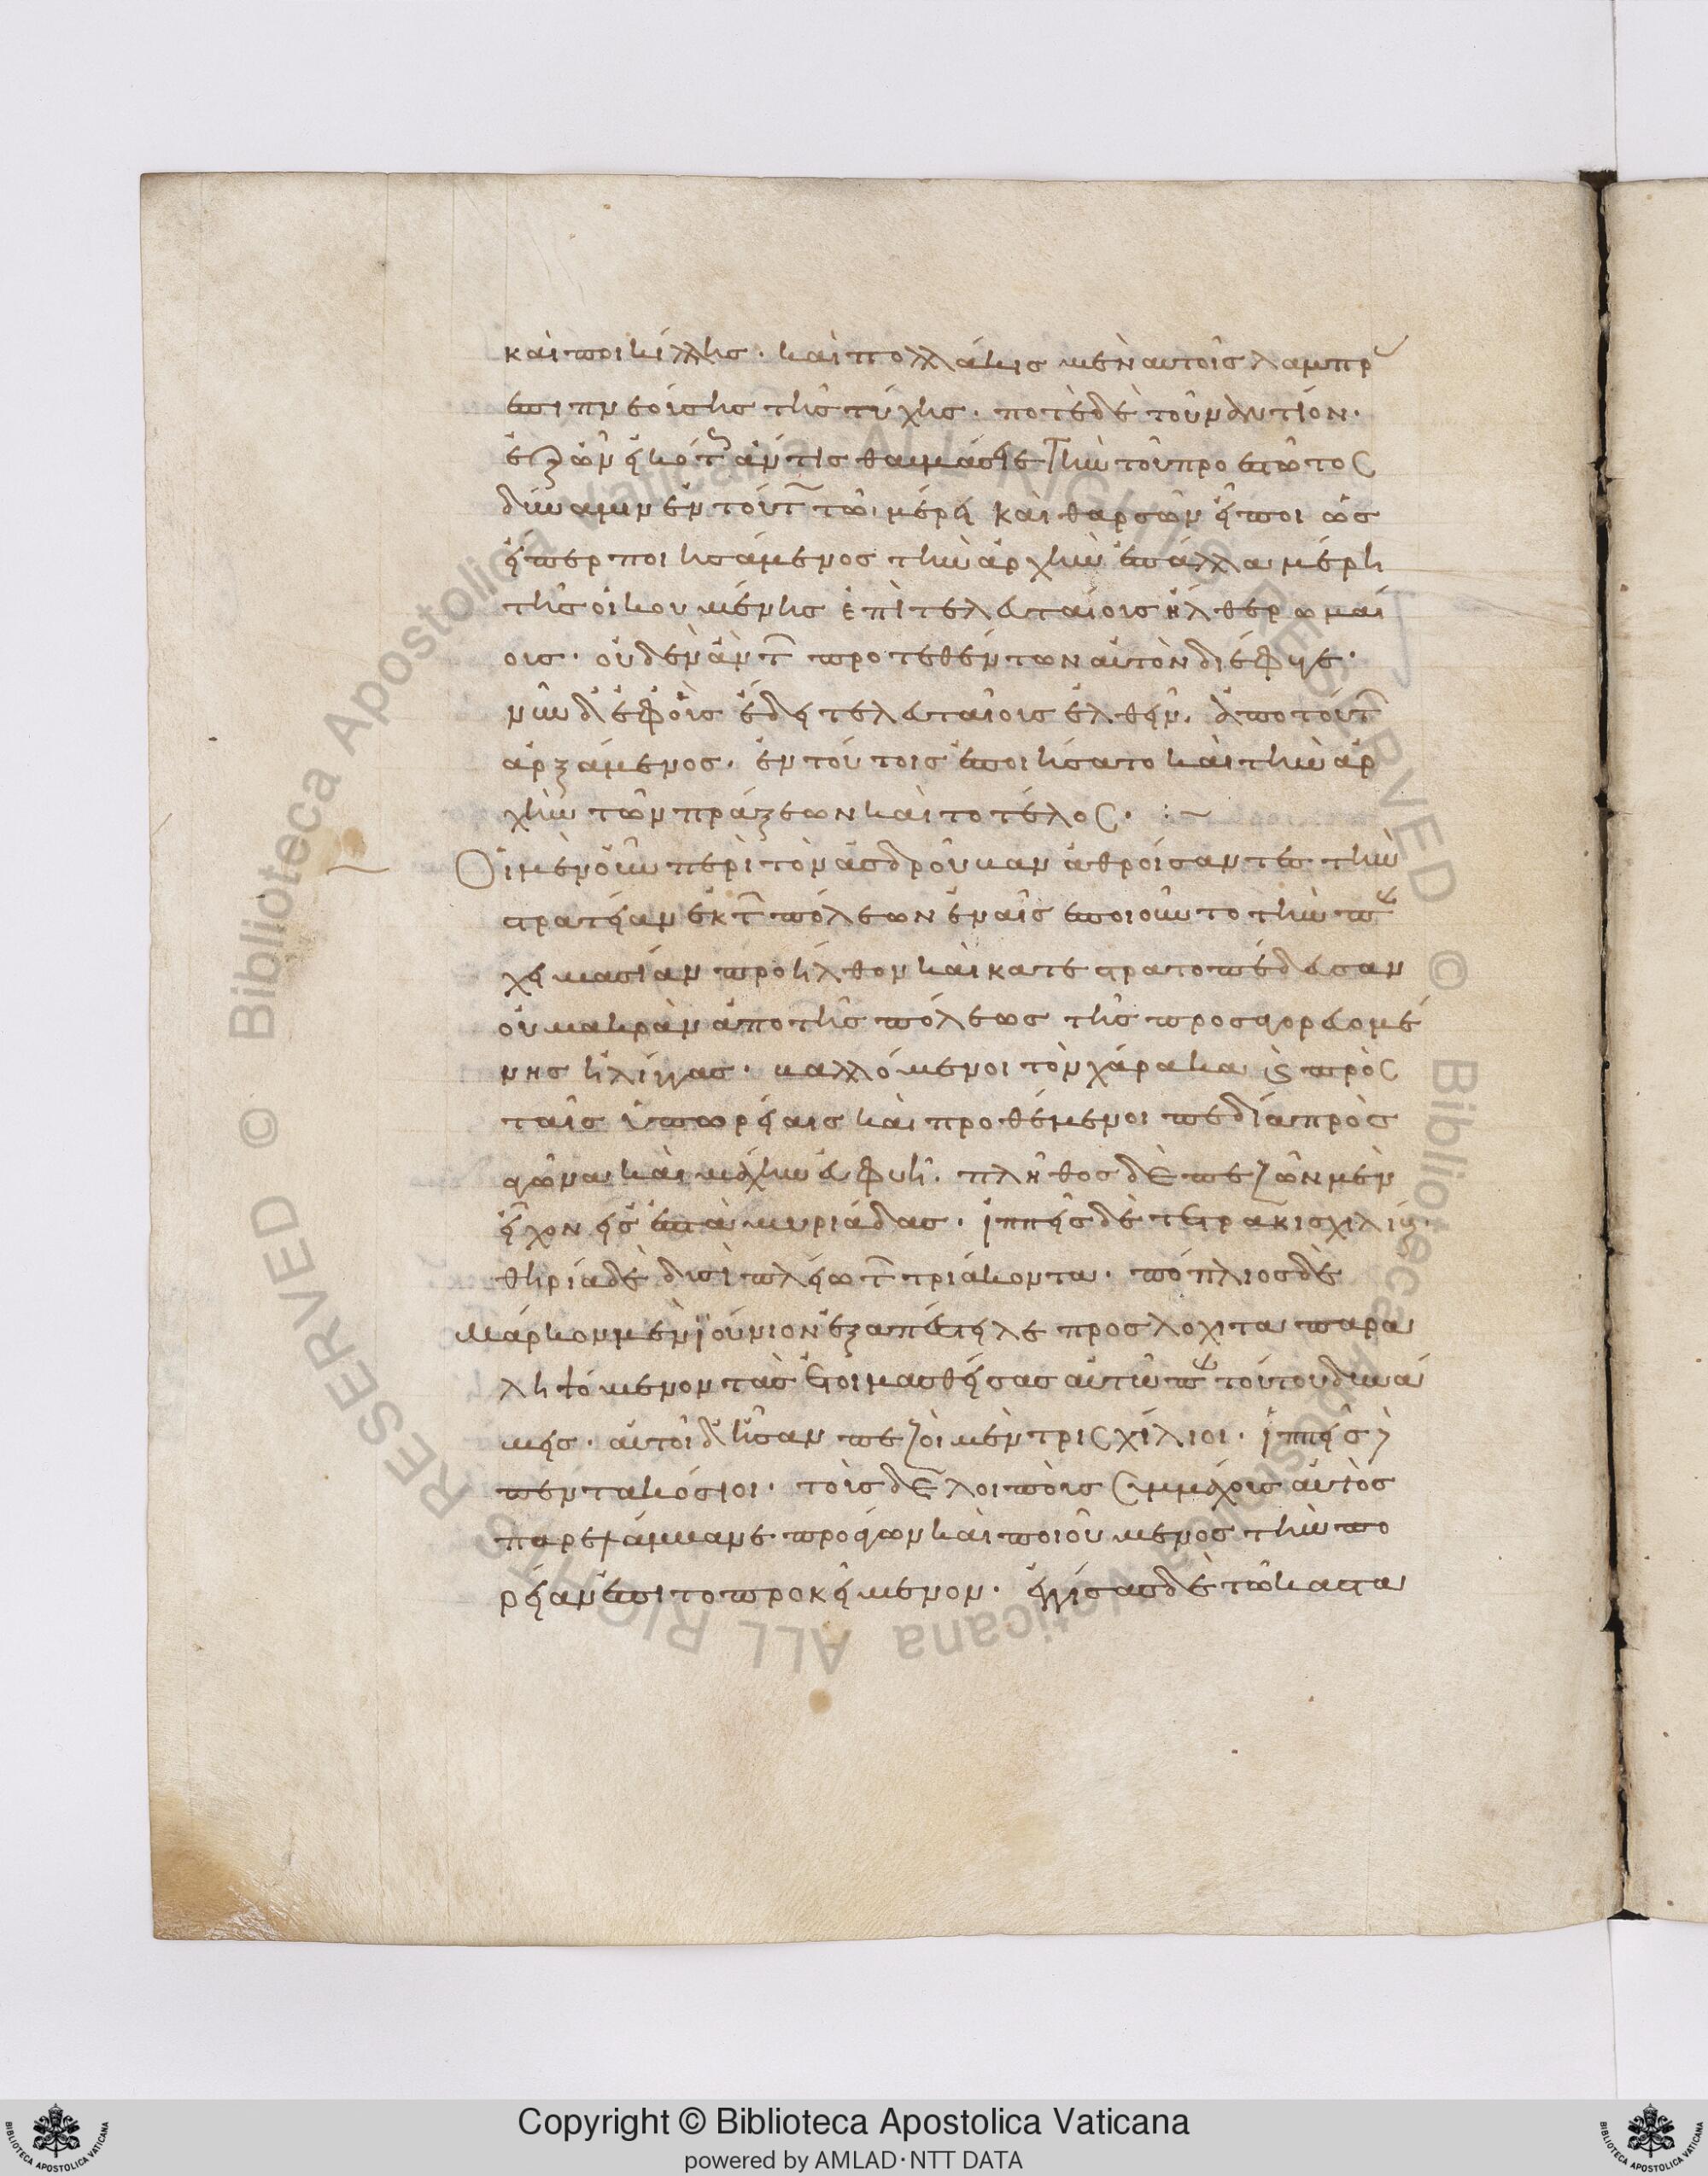 και ποικίλης· και πολλάκις μὲν αυτοῖς λαμπρ
επιπνεούσης τῆς τύχης. ποτὲ δὲ τοὐναντίον.
ἐξ ὧν εἰκότως ἄν τις θαυμάσειε τὴν τοῦ προεστῶτος
δύναμιν ἐν τούτω τῶ μέρει καὶ θαρσῶν εἴποι ὡς
εἴπερ ποιησάμενος τὴν ἀρχὴν ἐπ ἄλλα μέρη
τῆς οἰκουμένης ἐπὶ τελευταίοις ἦλθε ρωμαί
οις· οὐδὲν ἂν τῶν προτεθέντων αὐτὸν διέφυγε·
νῦν δ ἐφ οἷς ἔδει τελευταίοις ἐλθεῖν, ἀπο τούτων
ἀρξάμενος· ἐν τούτοις ἐποιήσατο καὶ τὴν ἀρ
χὴν τῶν πράξεων καὶ το τέλος· :~
Οἱ μὲν οὖν περὶ τὸν ἀσδρούβαν ἀθροίσαντες τὴν
στρατείαν ἐκ τῶν πόλεων ἐν αἷς ἐποιοῦντο τὴν πα
χειμασίαν προῆλθον καὶ κατεστρατοπέδευσαν
οὐ μακρὰν ἀπο τῆς πόλεως τῆς προσαγορευομέ
νης ἠλίγγας· βαλλόμενοι τὸν χάρακα πρὸς
ταῖς ὑπωρείαις καὶ προθέμενοι πεδία πρὸς
ἀγῶνα καὶ μάχην εὐφυῆ. πλῆθος δὲ πεζῶν μὲν
εἶχον εἰς ἑπτὰ μυριάδας. ἱππεῖς δὲ τετρακισχιλίους·
θηρία δὲ δυσὶ πλείω τῶν τριάκοντα. πόπλιος δὲ
Μάρκον μὲν ἰούνιον ἐξαπέστειλε προς λοχιτα παρα
ληψόμενον τὰς ἑτοιμασθείσας αὐτῶ πα τούτου δυνά
μεις. αὐτοὶ δ ἦσαν πεζοὶ μὲν τρισχίλιοι. ἱππεῖς
πεντακόσιοι. τοὺς δὲ λοιποὺς συμμάχους αὐτὸς
παρελάμβανε προάγων καὶ ποιούμενος τὴν πο
ρείαν ἐπι το προκείμενον. ἐγγίσας δὲ τῶ καστα
Copyright © Biblioteca Apostolica Vaticana
powered by AMLAD·NTT DATA